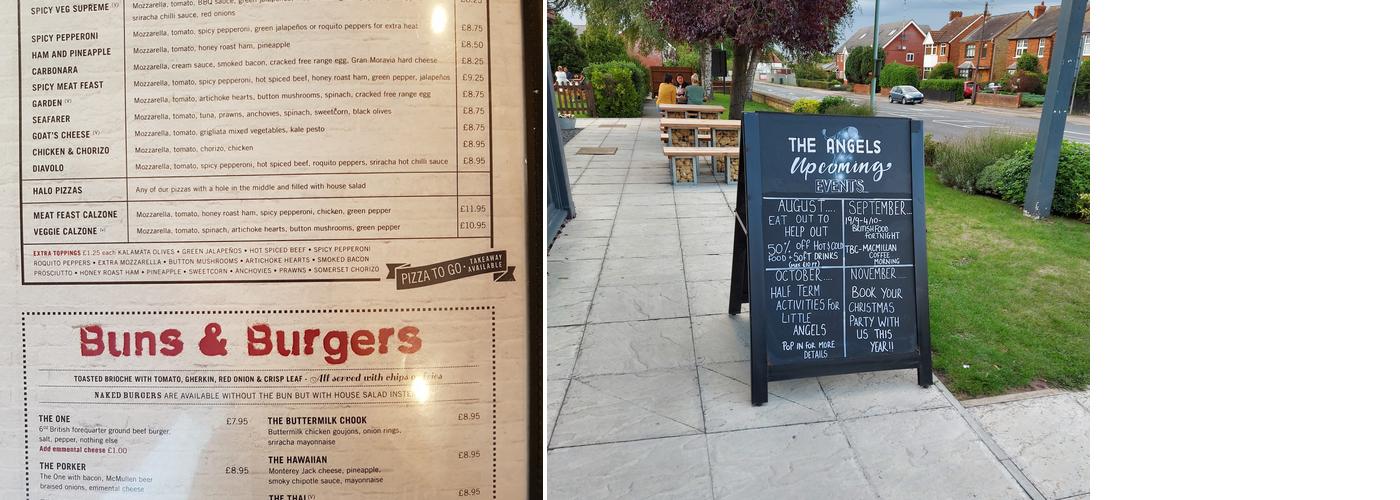 SPICY VEG SUPREME (V)
Mozzarella, tomato, BBQ sauce,
sriracha chilli sauce, red onions
SPICY PEPPERONI
Mozzarella, tomato, spicy pepperoni, green jalapeños or roquito peppers for extra heat
£8.75
HAM AND PINEAPPLE
Mozzarella, tomato, honey roast ham, pineapple
£8.50
CARBONARA
Mozzarella, cream sauce, smoked bacon, cracked free range egg, Gran Moravia hard cheese
£8.25
SPICY MEAT FEAST
Mozzarella, tomato, spicy pepperoni, hot spiced beef, honey roast ham, green pepper, jalapeños
£9.25
GARDEN (V)
Mozzarella, tomato, artichoke hearts, button mushrooms, spinach, cracked free range egg
£8.75
SEAFARER
Mozzarella, tomato, tuna, prawns, anchovies, spinach, sweetcorn, black olives
£8.75
GOAT'S CHEESE (V)
Mozzarella, tomato, grigliata mixed vegetables, kale pesto
£8.75
CHICKEN & CHORIZO
Mozzarella, tomato, chorizo, chicken
£8.95
DIAVOLO
Mozzarella, tomato, spicy pepperoni, hot spiced beef, roquito peppers, sriracha hot chilli sauce
£8.95
HALO PIZZAS
Any of our pizzas with a hole in the middle and filled with house salad
MEAT FEAST CALZONE
Mozzarella, tomato, honey roast ham, spicy pepperoni, chicken, green pepper
£11.95
VEGGIE CALZONE (V)
Mozzarella, tomato, spinach, artichoke hearts, button mushrooms, green pepper
£10.95
EXTRA TOPPINGS £1.25 each KALAMATA OLIVES • GREEN JALAPEÑOS • HOT SPICED BEEF • SPICY PEPPERONI
ROQUITO PEPPERS • EXTRA MOZZARELLA • BUTTON MUSHROOMS • ARTICHOKE HEARTS • SMOKED BACON
PROSCIUTTO • HONEY ROAST HAM • PINEAPPLE • SWEETCORN • ANCHOVIES • PRAWNS • SOMERSET CHORIZO
PIZZA TO GO • TAKEAWAY
AVAILABLE
Buns & Burgers
TOASTED BRIOCHE WITH TOMATO, GHERKIN, RED ONION & CRISP LEAF - All served with chips or fries
NAKED BURGERS ARE AVAILABLE WITHOUT THE BUN BUT WITH HOUSE SALAD
THE ONE £7.95
6oz British forequarter ground beef burger,
salt, pepper, nothing else
Add emmental cheese £1.00
THE PORKER £8.95
The One with bacon, McMullen beer
braised onions, emmental cheese
THE BUTTERMILK CHOOK £8.95
Buttermilk chicken goujons, onion rings,
sriracha mayonnaise
THE HAWAIIAN £8.95
Monterey Jack cheese, pineapple,
smoky chipotle sauce, mayonnaise
THE THAI (V) £8.95
THE ANGELS
Upcoming
EVENTS
AUGUST....
EAT OUT TO
HELP OUT
50% off HOT & COLD
FOOD + SOFT DRINKS
(max £10 pp)
SEPTEMBER...
19/9-4/10-
BRITISH FOOD
FORTNIGHT
TBC-MACMILLAN
COFFEE
MORNING
OCTOBER....
HALF TERM
ACTIVITIES FOR
LITTLE
ANGELS
POP IN FOR MORE
DETAILS
NOVEMBER....
BOOK YOUR
CHRISTMAS
PARTY WITH
US THIS
YEAR!!